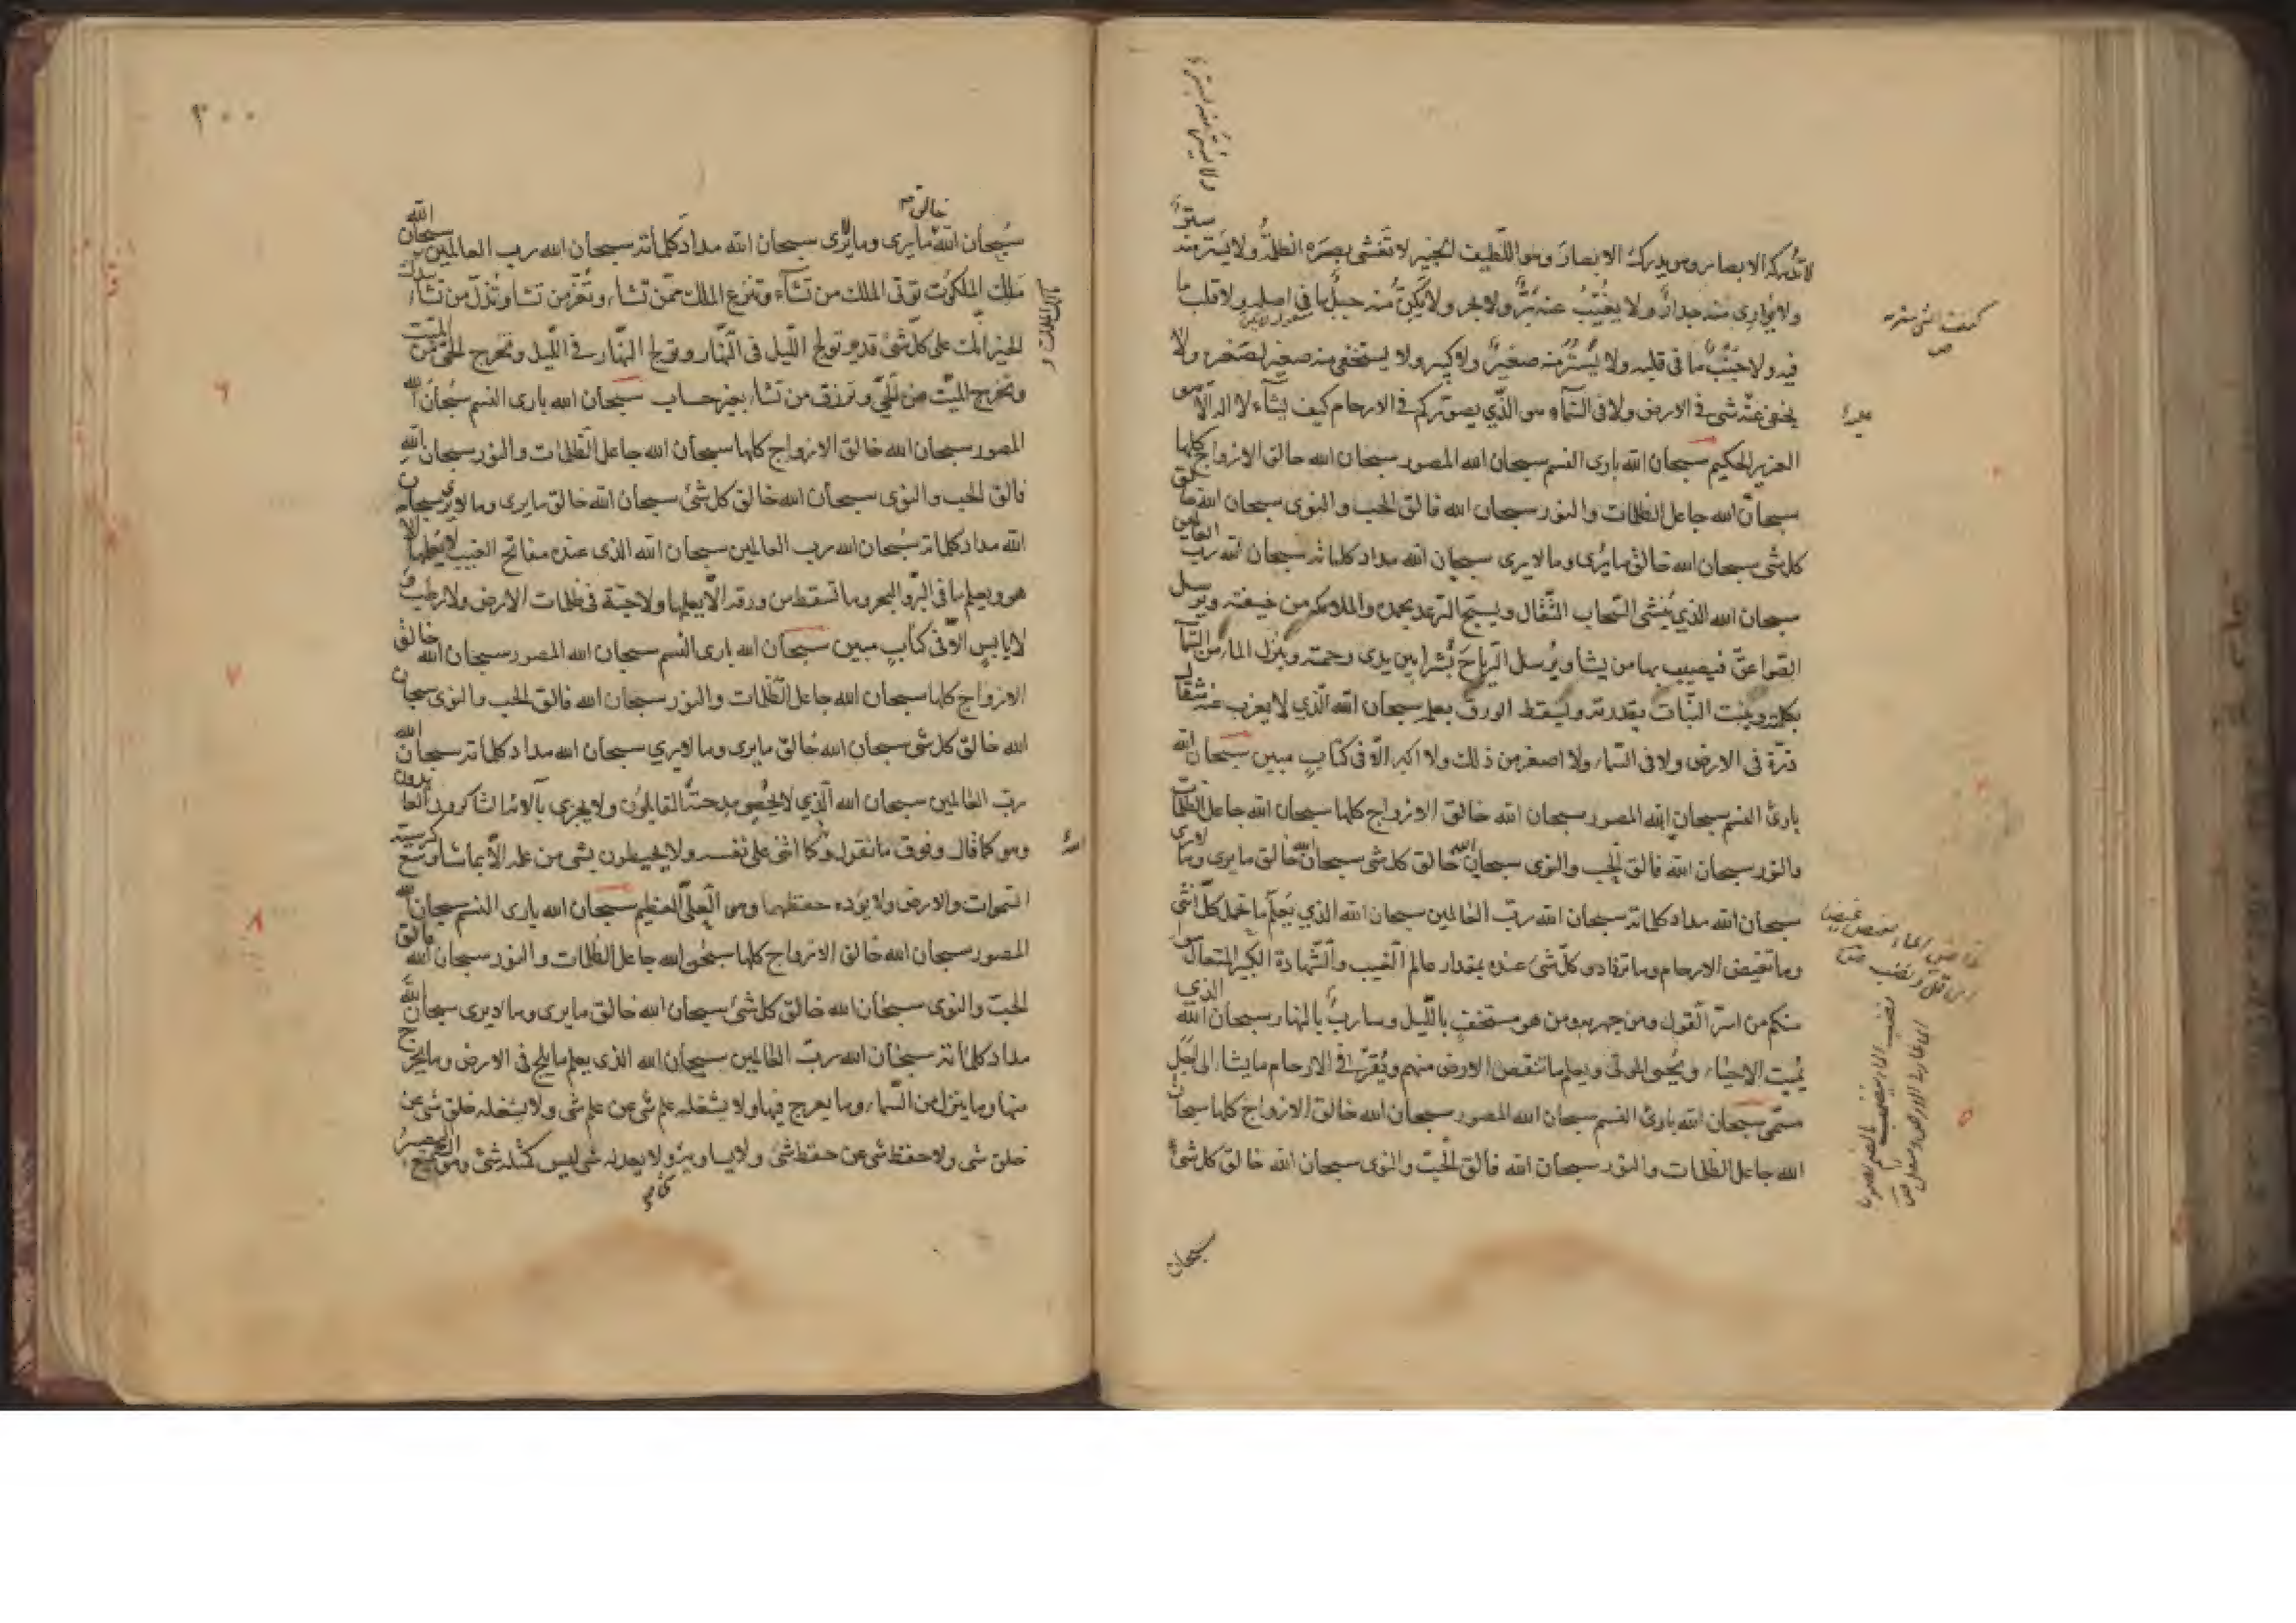 لا تدركه الابصار وهو يدرك الابصار وهو اللطيف الخبير لا تغشى بصره الظلمة ولا يستتر منه ستر
ولا يوارى منه جدار ولا يغيب عنه بر ولا بحر ولا يكن منه جبل ما في اصله ولا قلب ما
فيه ولا جنب ما في قلبه ولا يستتر منه صغير ولا كبير ولا يستخفى منه صغير لصغره ولا
يخفى عنه شئ في الارض ولا في السماء هو الذي يصوركم في الارحام كيف يشاء لا اله الا هو
العزيز الحكيم سبحان الله بارى النسم سبحان الله المصور سبحان الله خالق الازواج كلها
سبحان الله جاعل الظلمات والنور سبحان الله فالق الحب والنوى سبحان الله خالق
كل شئ سبحان الله خالق ما يرى وما لا يرى سبحان الله مداد كلماته سبحان الله رب العالمين
سبحان الله الذي ينشئ السحاب الثقال ويسبح الرعد بحمده والملائكة من خيفته ويرسل
الصواعق فيصيب بها من يشاء ويرسل الرياح بشرا بين يدى رحمته وينزل الماء من السماء
بكلمته وينبت النبات بقدرته ويسقط الورق بعلمه سبحان الله الذي لا يعزب عنه مثقال
ذرة في الارض ولا في السماء ولا اصغر من ذلك ولا اكبر الا في كتاب مبين سبحان الله
بارئ النسم سبحان الله المصور سبحان الله خالق الازواج كلها سبحان الله جاعل الظلمات
والنور سبحان الله فالق الحب والنوى سبحان الله خالق كل شئ سبحان الله خالق ما يرى وما لا يرى
سبحان الله مداد كلماته سبحان الله رب العالمين سبحان الله الذي يعلم ما تحمل كل انثى
وما تغيض الارحام وما تزداد وكل شئ عنده بمقدار عالم الغيب والشهادة الكبير المتعال سواء
منكم من اسر القول ومن جهر به ومن هو مستخف بالليل وسارب بالنهار سبحان الله الذي
يميت الاحياء ويحيى الموتى ويعلم ما تنقص الارض منهم ويقر في الارحام ما يشاء الى اجل
مسمى سبحان الله بارئ النسم سبحان الله المصور سبحان الله خالق الازواج كلها سبحان
الله جاعل الظلمات والنور سبحان الله فالق الحب والنوى سبحان الله خالق كل شئ
سبحان
٢٠٠
خالق
سبحان الله ما يرى وما لا يرى سبحان الله مداد كلماته سبحان الله رب العالمين سبحان الله
مالك الملكوت توتى الملك من تشاء وتنزع الملك ممن تشاء وتعز من تشاء وتذل من تشاء بيدك
الخير انك على كل شئ قدير تولج الليل في النهار وتولج النهار في الليل وتخرج الحي من الميت
وتخرج الميت من الحي وترزق من تشاء بغير حساب سبحان الله بارى النسم سبحان الله
المصور سبحان الله خالق الازواج كلها سبحان الله جاعل الظلمات والنور سبحان الله
فالق الحب والنوى سبحان الله خالق كل شئ سبحان الله خالق ما يرى وما لا يرى سبحان
الله مداد كلماته سبحان الله رب العالمين سبحان الله الذى عنده مفاتح الغيب لا يعلمها الا
هو ويعلم ما في البر والبحر وما تسقط من ورقة الا يعلمها ولا حبة في ظلمات الارض ولا رطب و
لا يابس الا في كتاب مبين سبحان الله بارى النسم سبحان الله المصور سبحان الله خالق
الازواج كلها سبحان الله جاعل الظلمات والنور سبحان الله فالق الحب والنوى سبحان
الله خالق كل شئ سبحان الله خالق ما يرى وما لا يرى سبحان الله مداد كلماته سبحان الله
رب العالمين سبحان الله الذي لا يحصى مدحته القايلون ولا يجزى بآلائه الشاكرون العابدون
وهو كما قال وفوق ما نقول وكما اثنى على نفسه ولا يحيطون بشئ من علمه الا بما شاء وسع كرسيه
السموات والارض ولا يؤده حفظهما وهو العلي العظيم سبحان الله بارى النسم سبحان الله
المصور سبحان الله خالق الازواج كلها سبحن الله جاعل الظلمات والنور سبحان الله فالق
الحب والنوى سبحان الله خالق كل شئ سبحان الله خالق ما يرى وما لا يرى سبحان الله
مداد كلماته سبحان الله رب العالمين سبحان الله الذى يعلم ما يلج في الارض وما يخرج
منها وما ينزل من السماء وما يعرج فيها ولا يشغله علم شئ عن علم شئ ولا يشغله خلق شئ عن
خلق شئ ولا حفظ شئ عن حفظ شئ ولا يساويه ولا يعدله شئ ليس كمثله شئ وهو السميع البصير
٦
٧
٨